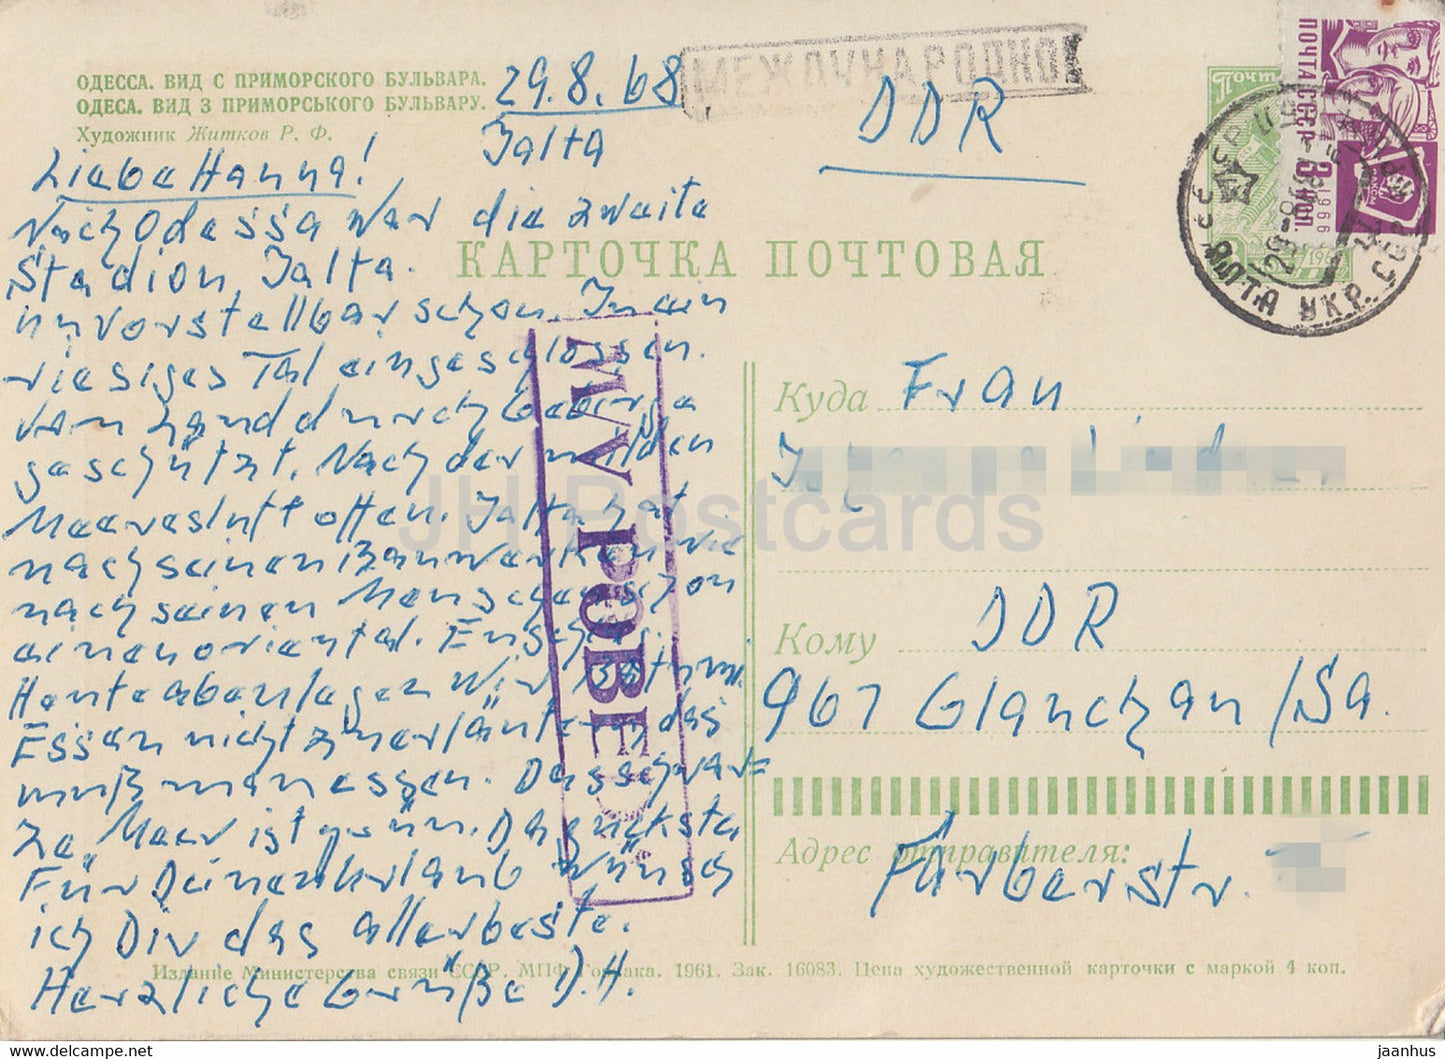 ОДЕССА. ВИД С ПРИМОРСКОГО БУЛЬВАРА.
ОДЕСА. ВИД З ПРИМОРСЬКОГО БУЛЬВАРУ.
Художник Житков Р. Ф.
29.8.68
Jalta
МЕЖДУНАРОДНОЕ
DDR
Почта
ПОЧТА СССР
3 коп.
1966
ЯЛТА УКР. ССР
КАРТОЧКА ПОЧТОВАЯ
Liebe Hanna!
Nach Odessa war die zweite
Stadion, Jalta.
unvorstellbar schön. In ein
riesiges Tal eingeschlossen.
Vom Land durch Gebirge
geschützt. Nach der milden
Meeresluft offen. Jalta hat
nach seinen Bauwerken wie
nach seinen Menschen schon
einen oriental.
Heute abend
Essen nicht zu erläutern, das
muß man essen. Das schwar=
ze Meer ist grün.
Für Deinen Urlaub wünsch
ich Dir das allerbeste.
Herzliche Grüße D. H.
MVV POBED
Куда Frau
Кому DDR
967 Glauchau/Sa.
Адрес отправителя:
Färberstr.
Издание Министерства связи СССР. МПФ Гознака. 1961. Зак. 16083. Цена художественной карточки с маркой 4 коп.
JH Postcards
https://www.jh-postcards.com/
jaanhus